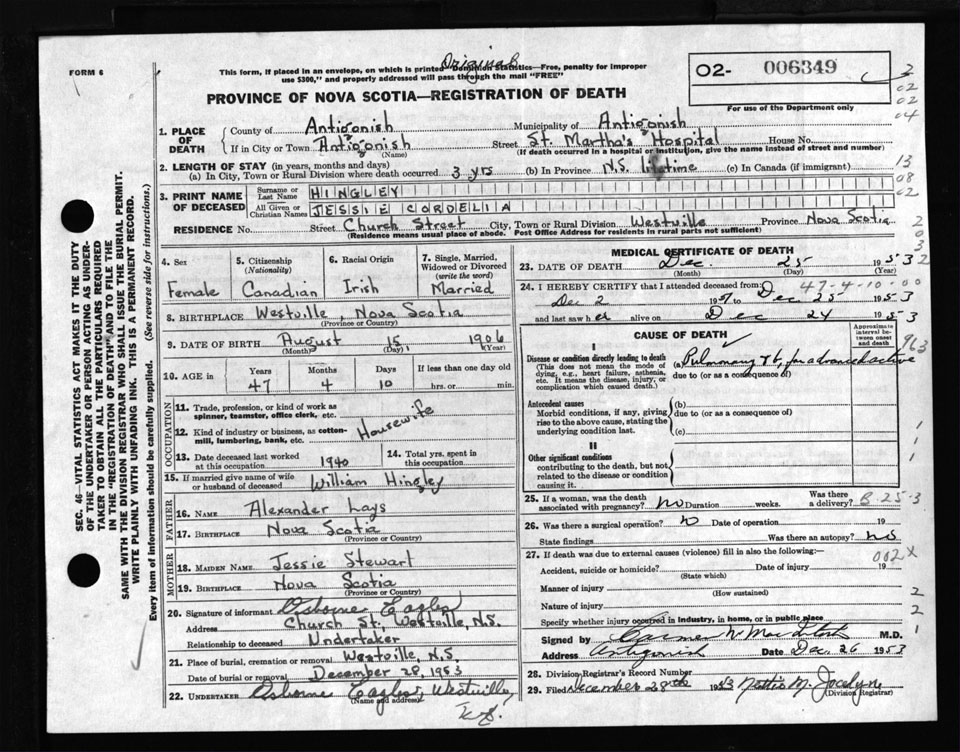 Original
FORM 6
This form, if placed in an envelope, on which is printed Dominion Statistics—Free, penalty for improper
use $300," and properly addressed will pass through the mail "FREE"
02- 006349
PROVINCE OF NOVA SCOTIA—REGISTRATION OF DEATH
For use of the Department only
1. PLACE OF DEATH { County of Antigonish Municipality of Antigonish
If in City or Town Antigonish (Name) Street St. Martha's Hospital House No.
(If death occurred in a hospital or institution, give the name instead of street and number)
2. LENGTH OF STAY (in years, months and days)
(a) In City, Town or Rural Division where death occurred 3 yrs (b) In Province N.S. lifetime (c) In Canada (if immigrant)
3. PRINT NAME OF DECEASED { Surname or Last Name HINGLEY
All Given or Christian Names JESSIE CORDELIA
RESIDENCE No. Street Church Street City, Town or Rural Division Westville Province Nova Scotia
(Residence means usual place of abode. Post Office Address for residents in rural parts not sufficient)
2
02
02
04
13
08
02
2
0
3
32
SEC. 46—VITAL STATISTICS ACT MAKES IT THE DUTY
OF THE UNDERTAKER OR PERSON ACTING AS UNDER-
TAKER TO OBTAIN ALL THE PARTICULARS REQUIRED
IN THE "REGISTRATION OF DEATH" AND TO FILE THE
SAME WITH THE DIVISION REGISTRAR WHO SHALL ISSUE THE BURIAL PERMIT.
WRITE PLAINLY WITH UNFADING INK. THIS IS A PERMANENT RECORD.
Every item of information should be carefully supplied. (See reverse side for instructions.)
4. Sex
Female
5. Citizenship
(Nationality)
Canadian
6. Racial Origin
Irish
7. Single, Married,
Widowed or Divorced
(write the word)
Married
8. BIRTHPLACE Westville, Nova Scotia
(Province or Country)
9. DATE OF BIRTH August 15 1906
(Month) (Day) (Year)
10. AGE in { Years Months Days If less than one day old
47 4 10 hrs. or min.
OCCUPATION
11. Trade, profession, or kind of work as
spinner, teamster, office clerk, etc.
12. Kind of industry or business, as cotton-
mill, lumbering, bank, etc.
Housewife
13. Date deceased last worked
at this occupation 1940
14. Total yrs. spent in
this occupation
15. If married give name of wife
or husband of deceased William Hingley
FATHER
16. NAME Alexander Lays
17. BIRTHPLACE Nova Scotia
(Province or Country)
MOTHER
18. MAIDEN NAME Jessie Stewart
19. BIRTHPLACE Nova Scotia
(Province or Country)
20. Signature of informant Osborne Eagles
Address Church St., Westville, N.S.
Relationship to deceased Undertaker
21. Place of burial, cremation or removal Westville, N.S
Date of burial or removal December 28, 1953
22. UNDERTAKER Osborne Eagles, Westville,
(Name and address)
N.S.
MEDICAL CERTIFICATE OF DEATH
23. DATE OF DEATH Dec. 25 1953
(Month) (Day) (Year)
47-4-10-00
24. I HEREBY CERTIFY that I attended deceased from:
Dec 2 1951 to Dec 25 1953
and last saw her alive on Dec 24 1953
CAUSE OF DEATH
Approximate
interval be-
tween onset
and death
I
Disease or condition directly leading to death
(This does not mean the mode of
dying, e.g., heart failure, asthenia,
etc. It means the disease, injury, or
complication which caused death.)
(a) Pulmonary Tb, far advanced active
due to (or as a consequence of)
Antecedent causes
Morbid conditions, if any, giving
rise to the above cause, stating the
underlying condition last.
(b)
due to (or as a consequence of)
(c)
II
Other significant conditions
contributing to the death, but not
related to the disease or condition
causing it.
1
1
1
25. If a woman, was the death
associated with pregnancy? No Duration weeks.
Was there
a delivery? B-25-3
26. Was there a surgical operation? No Date of operation 19
State findings Was there an autopsy? No
27. If death was due to external causes (violence) fill in also the following:—
002X
Accident, suicide or homicide? Date of injury 19
(State which)
Manner of injury
(How sustained)
2
Nature of injury
2
Specify whether injury occurred in industry, in home, or in public place
1
Signed by M.D.
Address Antigonish Date Dec. 26 1953
28. Division Registrar's Record Number
29. Filed December 28th 1953 Nettie M. Jocelyn
(Division Registrar)